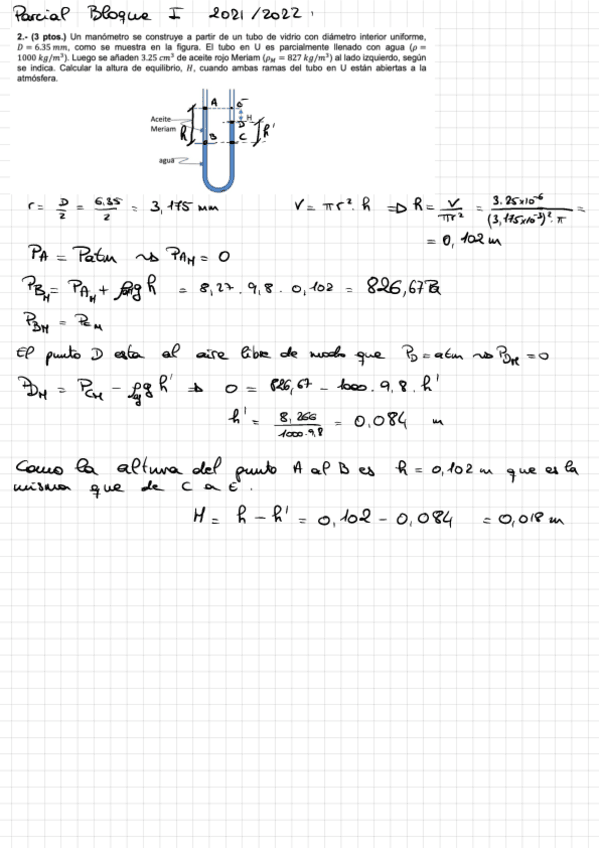 Parcial Bloque I 2021/2022.
2.- (3 ptos.) Un manómetro se construye a partir de un tubo de vidrio con diámetro interior uniforme,
D = 6.35 mm, como se muestra en la figura. El tubo en U es parcialmente llenado con agua (ρ =
1000 kg/m³). Luego se añaden 3.25 cm³ de aceite rojo Meriam (ρM = 827 kg/m³) al lado izquierdo, según
se indica. Calcular la altura de equilibrio, H, cuando ambas ramas del tubo en U están abiertas a la
atmósfera.
A
H
Aceite
Meriam
h
D
h'
B
C
agua
r = D/2 = 6.35/2 = 3,175 mm V = πr²·h => h = V/πr² = 3.25x10⁻⁶/(3,175x10⁻³)²·π =
= 0,102 m
PA = Patm → PAM = 0
PBM = PAM + ρg h = 8,27·9,8·0,102 = 826,67 Pa
PBM = PCM
El punto D esta al aire libre de modo que PD = atm → PDM = 0
PDM = PCM - ρag g h' → 0 = 826,67 - 1000·9,8·h'
h' = 8,266/1000·9,8 = 0,084 m
Como la altura del punto A al B es h = 0,102 m que es la
misma que de C a E.
H = h - h' = 0,102 - 0,084 = 0,018 m